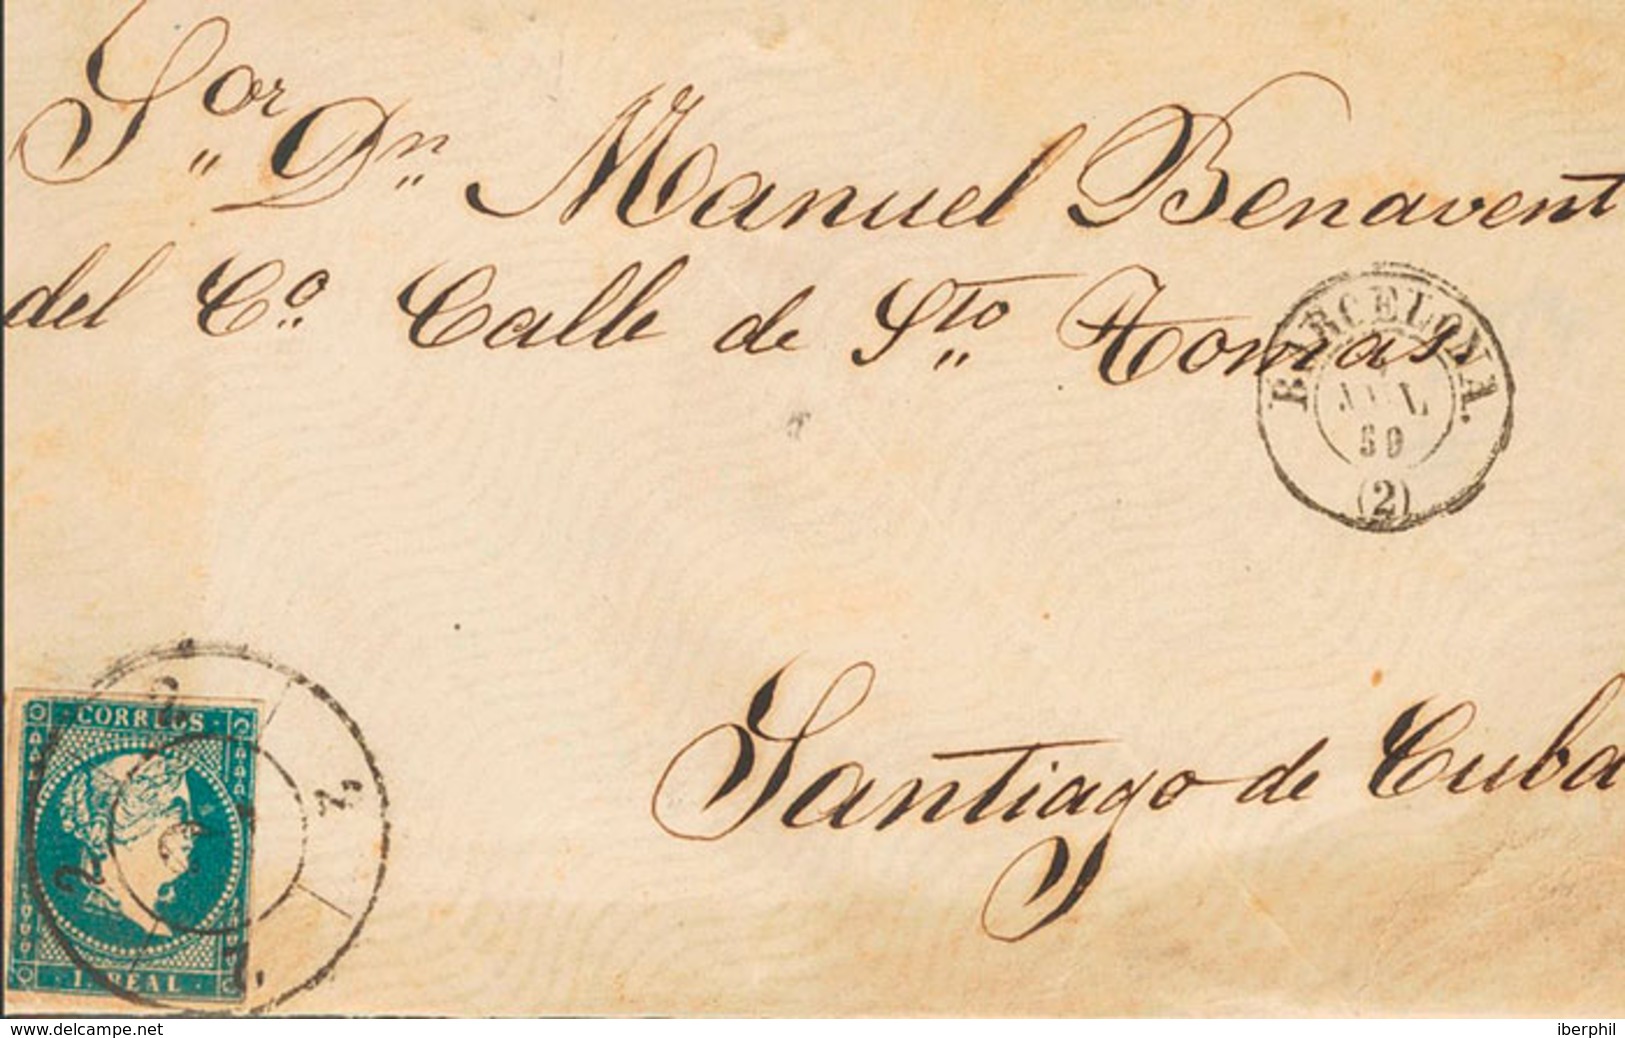 Sor. Dn. Manuel Benavent
del Co. Calle de Sto. Tomas
BARCELONA.
59
(2)
Santiago de Cuba
CORREOS
2
2
2
2
1. REAL
www.delcampe.net
iberphil